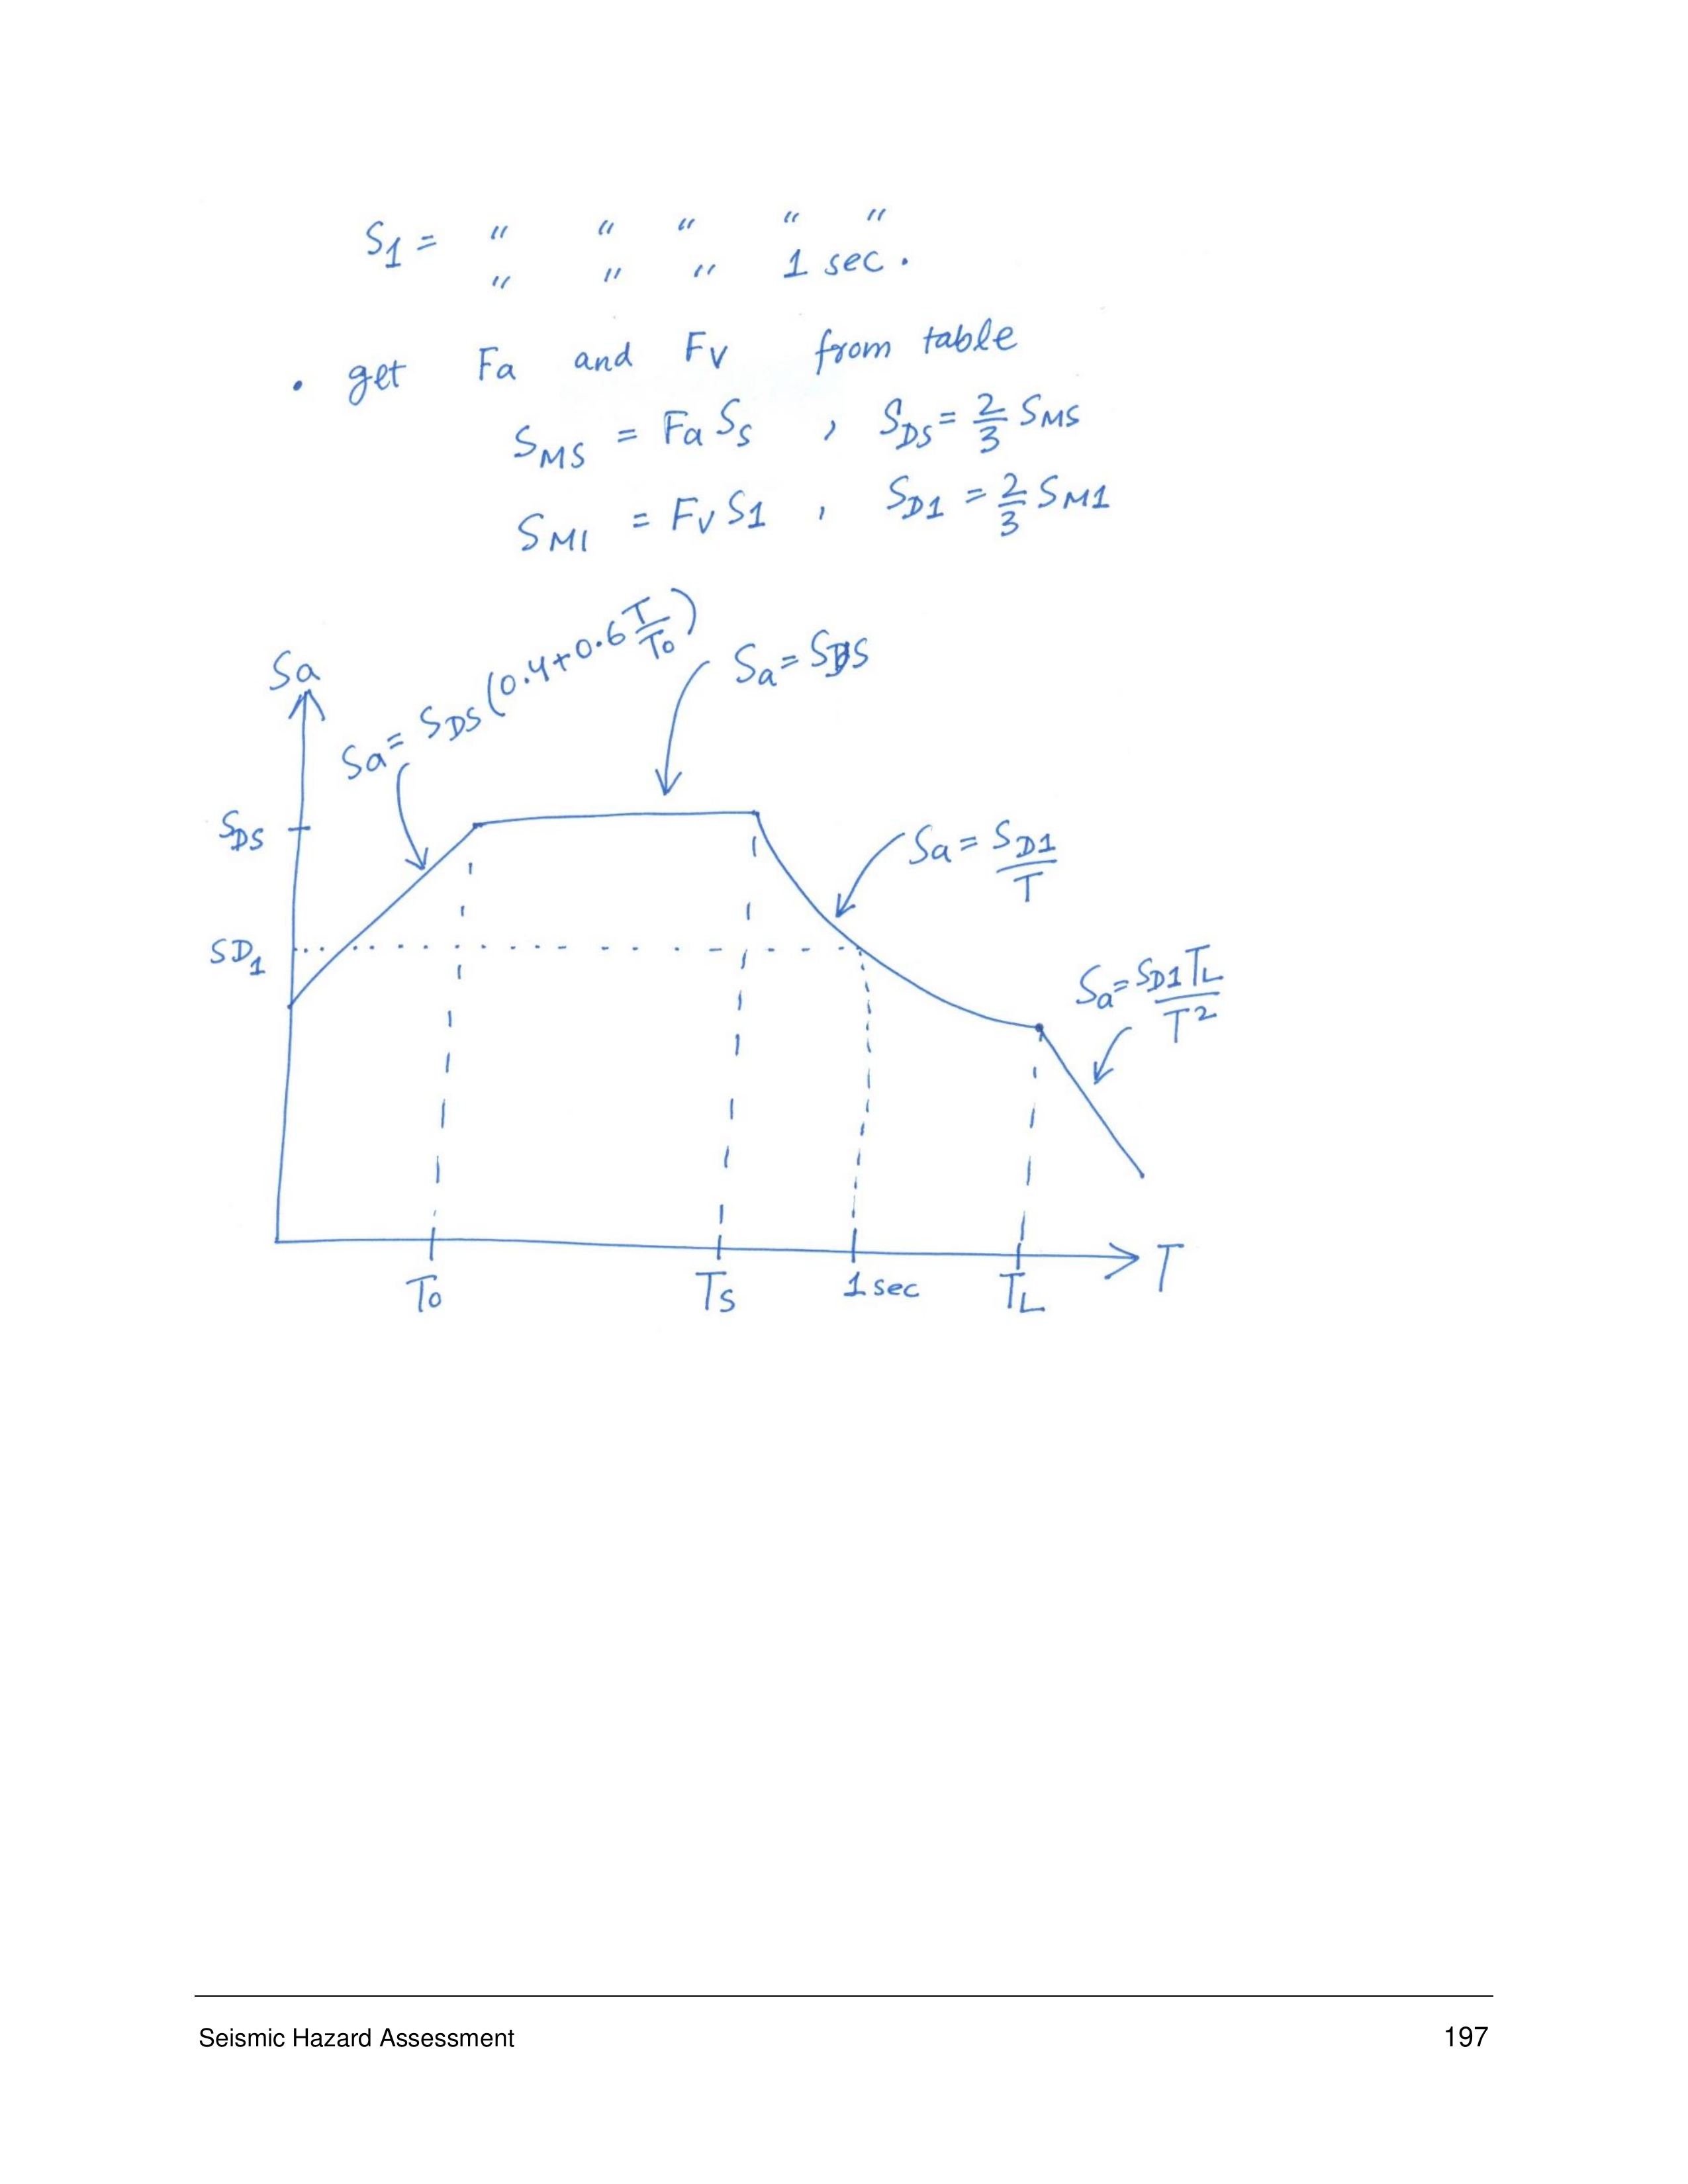 S1 = " " " " "
" " " 1 sec.
• get Fa and Fv from table
SMS = Fa Ss , SDS = 2/3 SMS
SM1 = Fv S1 , SD1 = 2/3 SM1
Sa = SDS (0.4+0.6 T/T0)
Sa = SDS
Sa
SDS
Sa = SD1/T
SD1
Sa = SD1 TL/T²
T0 TS 1 sec TL T
Seismic Hazard Assessment 197